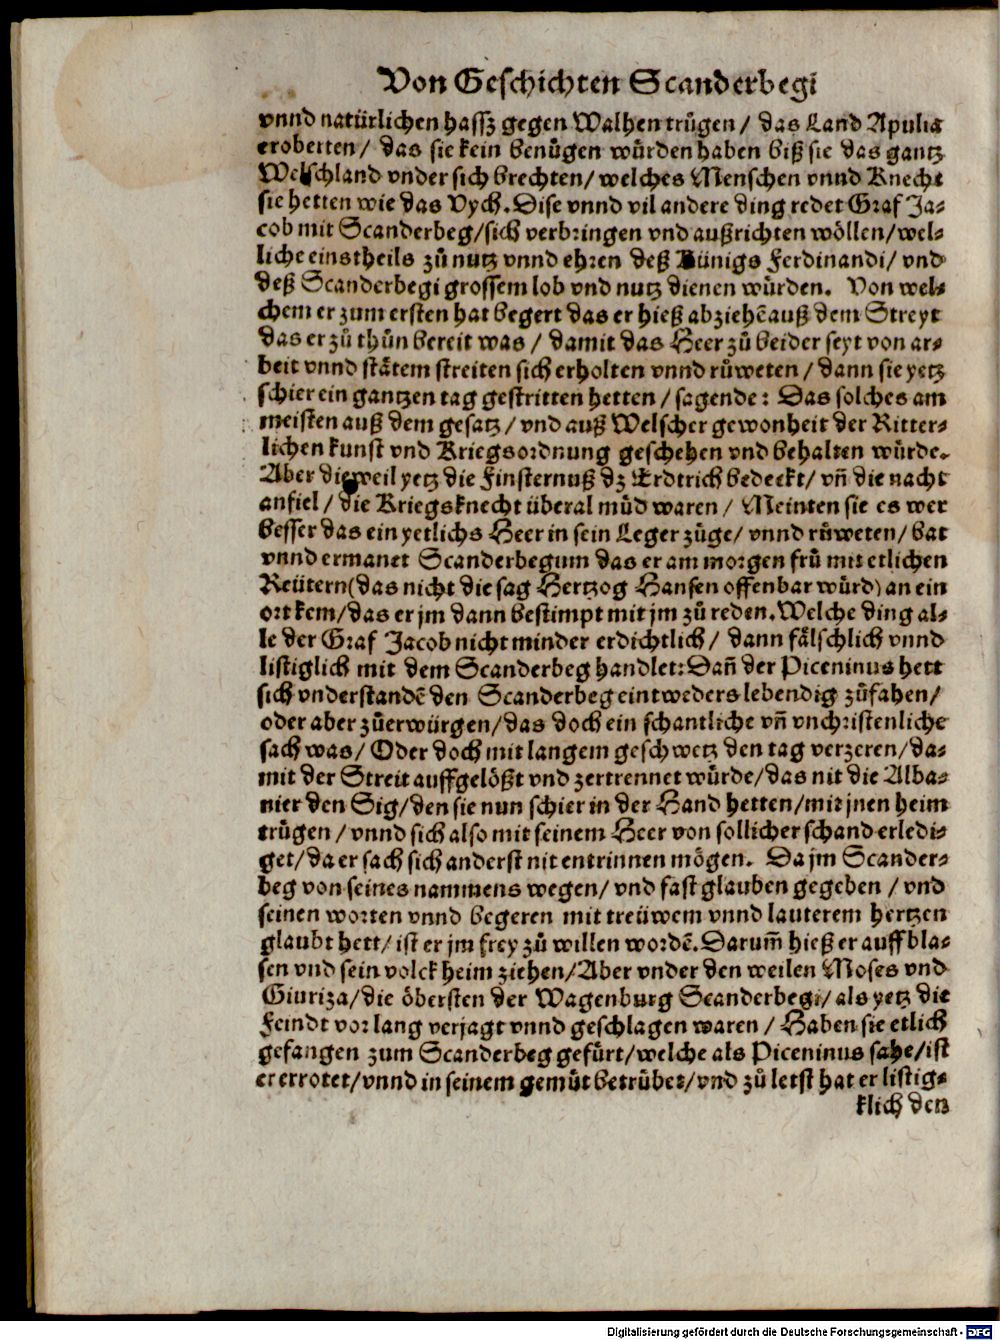 Von Geschichten Scanderbegi
vnnd natürlichen hassz gegen Walhen trůgen / das Land Apulia
eroberten / das sie kein benůgen würden haben biß sie das gantz
Welschland vnder sich brechten / welches Menschen vnnd Knecht
sie hetten wie das Vych. Dise vnnd vil andere ding redet Graf Ja-
cob mit Scanderbeg / sich verbringen vnd außrichten wöllen / wel-
liche einstheils zů nutz vnnd ehren deß Künigs Ferdinandi / vnd
deß Scanderbegi grossem lob vnd nutz dienen würden. Von wel-
chem er zum ersten hat begert das er hieß abziehē auß dem Streyt
das er zů thůn bereit was / damit das Heer zů beider seyt von ar-
beit vnnd stätem streiten sich erholten vnnd růweten / dann sie yetz
schier ein gantzen tag gestritten hetten / sagende: Das solches am
meisten auß dem gesatz / vnd auß Welscher gewonheit der Ritter-
lichen kunst vnd Kriegsordnung geschehen vnd behalten würde.
Aber dieweil yetz die Finsternuß dz Erdtrich bedeckt / vñ die nacht
anfiel / die Kriegsknecht überal můd waren / Meinten sie es wer
besser das ein yetlichs Heer in sein Leger züge / vnnd růweten / bat
vnnd ermanet Scanderbegum das er am morgen frů mit etlichen
Reütern (das nicht die sag Hertzog Hansen offenbar würd) an ein
ort kem / das er jm dann bestimpt mit jm zů reden. Welche ding al-
le der Graf Jacob nicht minder erdichtlich / dann fälschlich vnnd
listiglich mit dem Scanderbeg handlet: Dañ der Piceninus hett
sich vnderstandē den Scanderbeg eintweders lebendig zůfahen /
oder aber zůerwürgen / das doch ein schantliche vñ vnchristenliche
sach was / Oder doch mit langem geschwetz den tag verzeren / da-
mit der Streit auffgelößt vnd zertrennet würde / das nit die Alba-
nier den Sig / den sie nun schier in der Hand hetten / mit jnen heim
trůgen / vnnd sich also mit seinem Heer von sollicher schand erledi-
get / da er sach sich anderst nit entrinnen mögen. Da jm Scander-
beg von seines nammens wegen / vnd fast glauben gegeben / vnd
seinen worten vnnd begeren mit treüwem vnnd lauterem hertzen
glaubt hett / ist er jm frey zů willen wordē. Darum̃ hieß er auffbla-
sen vnd sein volck heim ziehen / Aber vnder den weilen Moses vnd
Giuriza / die öbersten der Wagenburg Scanderbegi / als yetz die
Feindt vor lang verjagt vnnd geschlagen waren / Haben sie etlich
gefangen zum Scanderbeg gefürt / welche als Piceninus sahe / ist
er errotet / vnnd in seinem gemůt betrübet / vnd zů letst hat er listig-
klich den
Digitalisierung gefördert durch die Deutsche Forschungsgemeinschaft - DFG